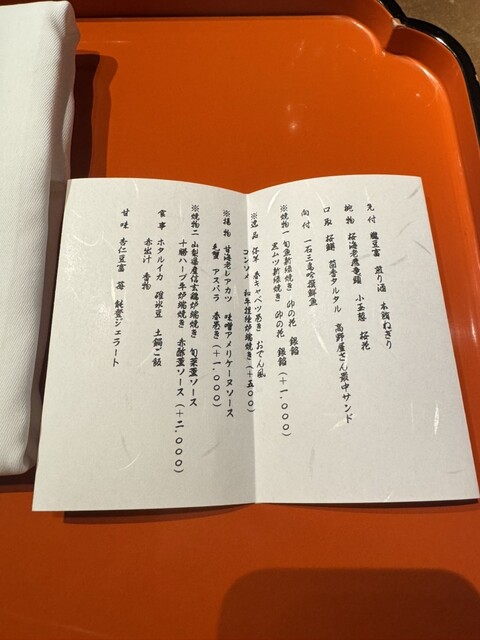 先付 鯛豆富 煎り酒 本餞ねぎり
桃物 桜海老飛竜頭 小玉葱 桜花
口取 桜鱒 筒香タルタル 高野屋さん最中サンド
向付 一石三鳥吟撰鮮魚
※焼物一 旬魚新緑焼き 卯の花 銀餡
黒ムツ新緑焼き 卯の花 銀餡(+一.〇〇〇)
※逸品 筍羊 春キャベツ巻き おでん風
コンソメ 和牛 炉端焼き(+五〇〇)
※揚物 甘海老レアカツ 味噌アメリケーヌソース
毛蟹 アスパラ 春巻き(+一.〇〇〇)
※焼物二 山梨県産信玄鶏炉端焼き 旬菜薫ソース
十勝ハーブ牛炉端焼き 赤酢薫ソース(+二.〇〇〇)
食事 ホタルイカ 碓氷豆 土鍋ご飯
赤出汁 香物
甘味 杏仁豆富 苺 能登ジェラート